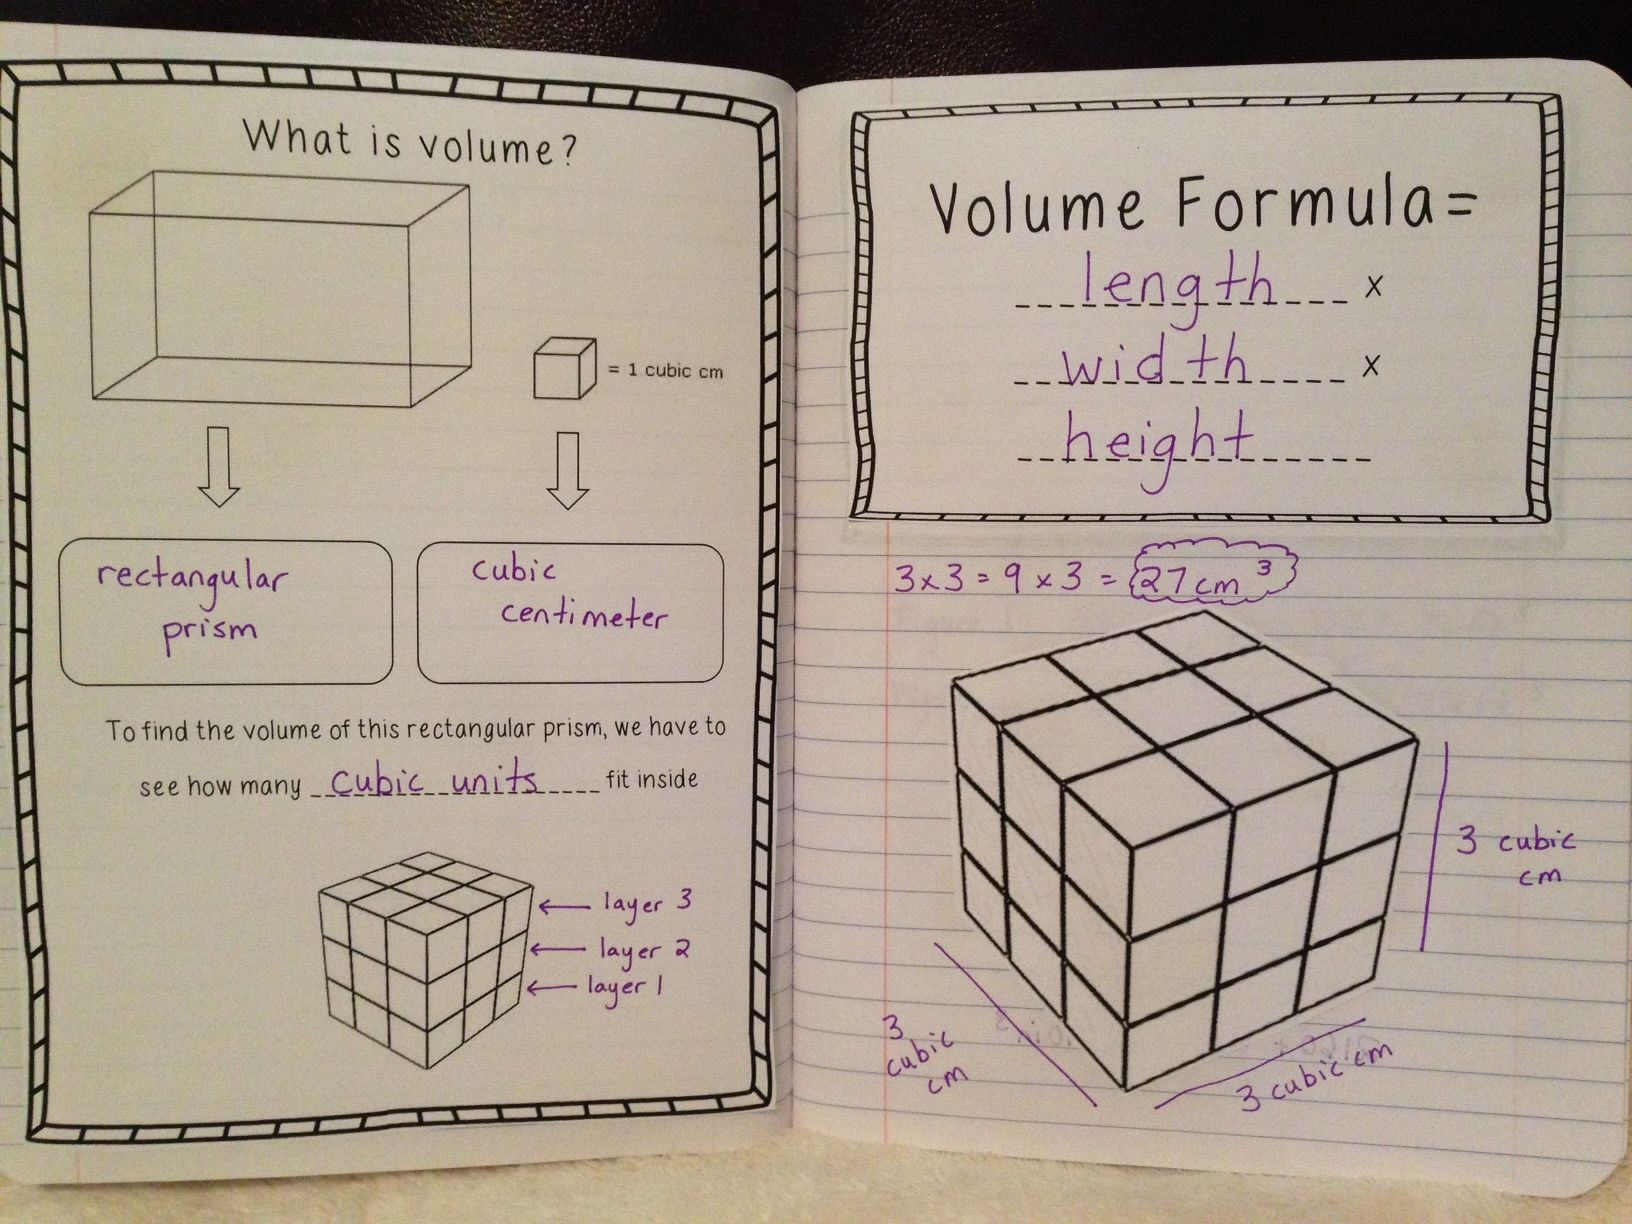 What is volume?
= 1 cubic cm
rectangular
prism
cubic
centimeter
To find the volume of this rectangular prism, we have to
see how many cubic units fit inside
layer 3
layer 2
layer 1
Volume Formula=
length x
width x
height
3x3=9x3= 27cm³
3 cubic
cm
3
cubic
cm
3 cubic cm